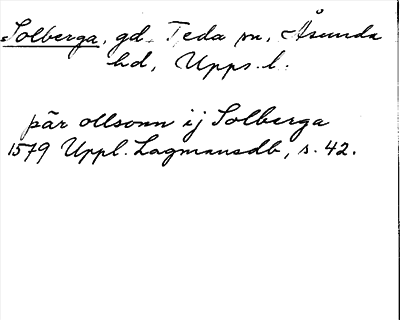 Solberga, gd. Teda sn, Åsunda
hd, Upps. l.
pär ollsonn ij Solberga
1579 Uppl. Lagmansdb, s. 42.